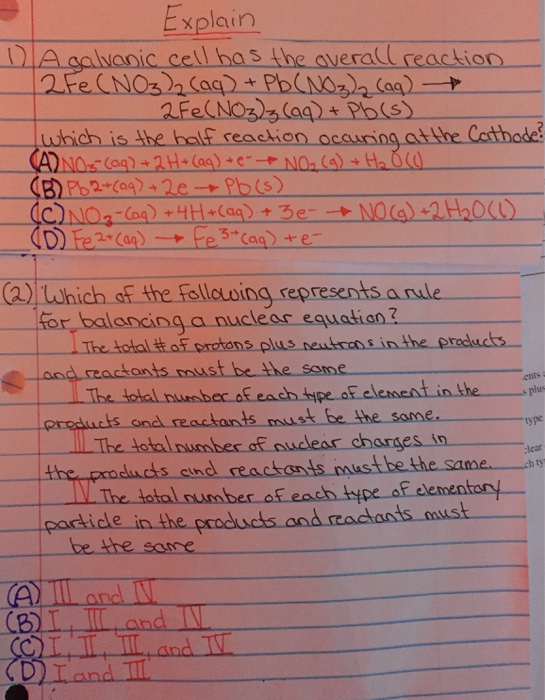 Explain
1) A galvanic cell has the overall reaction
2Fe(NO3)2 (aq) + Pb(NO3)2 (aq) →
2Fe(NO3)3 (aq) + Pb(s)
which is the half reaction occuring at the Cathode?
(A) NO3-(aq) + 2H+(aq) + e- → NO2(g) + H2O(l)
(B) Pb2+(aq) + 2e → Pb(s)
(C) NO3-(aq) + 4H+(aq) + 3e- → NO(g) + 2H2O(l)
(D) Fe2+(aq) → Fe3+(aq) + e-
(2) Which of the following represents a rule
for balancing a nuclear equation?
I The total # of protons plus neutrons in the products
and reactants must be the same
II The total number of each type of element in the
products and reactants must be the same.
III The total number of nuclear charges in
the products and reactants must be the same.
IV The total number of each type of elementary
particle in the products and reactants must
be the same
(A) III and IV
(B) I, III, and IV
(C) I, II, III, and IV
(D) I and III
ents
plus
type
lear
ch ty